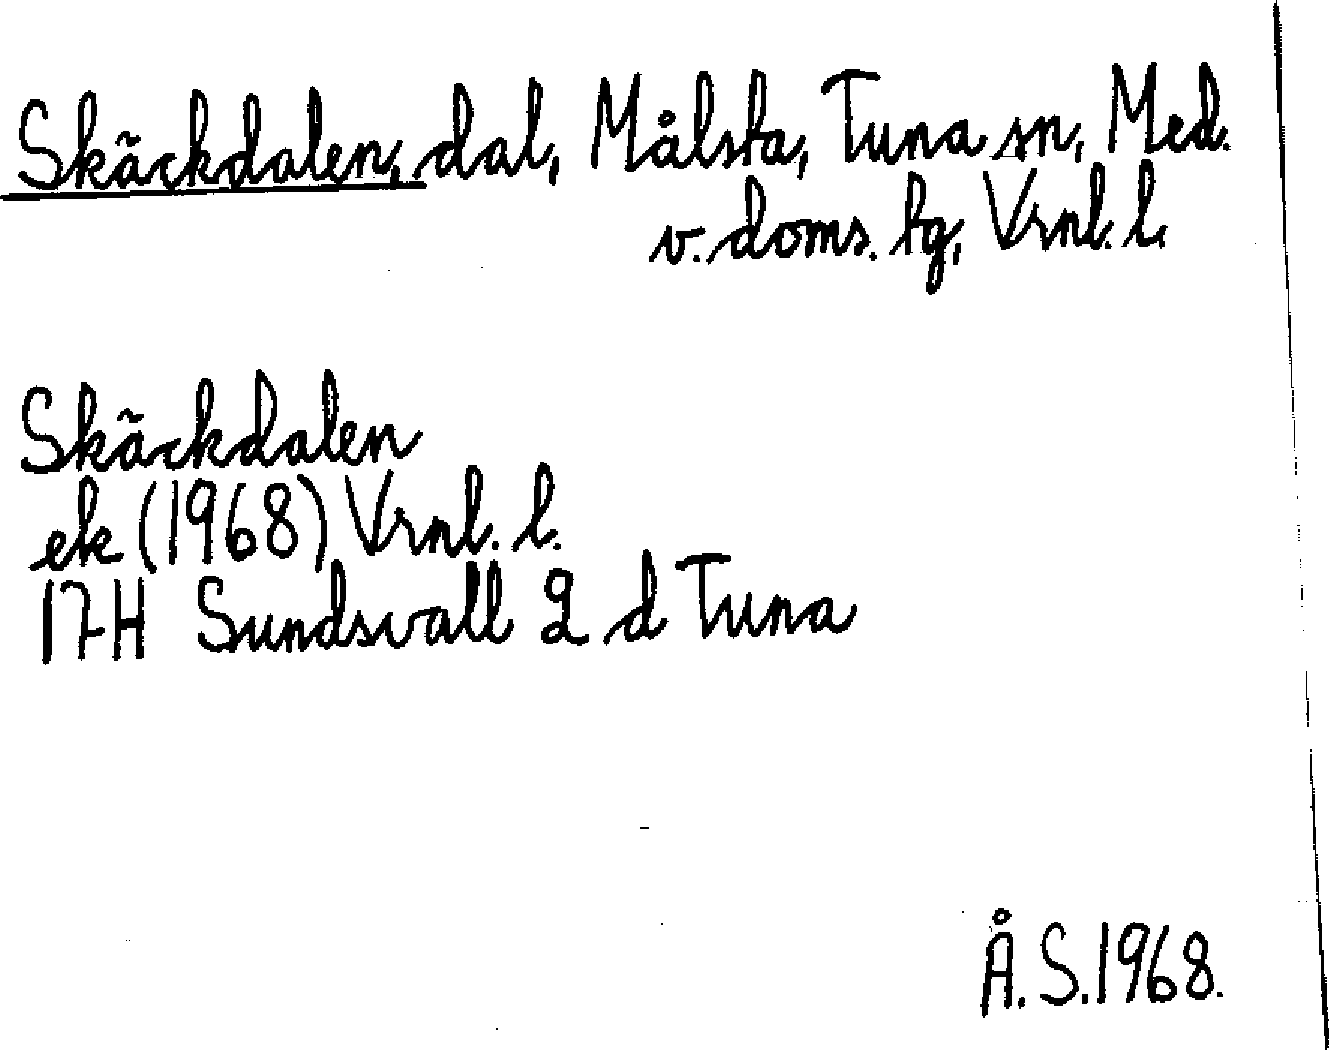 Skäckdalen, dal, Målsta, Tuna sn, Med.
v. doms. tg, Vrnl. l.
Skäckdalen
ek (1968) Vrnl. l.
17H Sundsvall 2 d Tuna
Å. S. 1968.